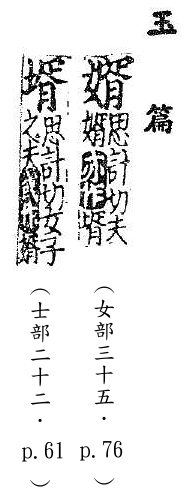 玉篇
婿 思計切夫
婿亦作壻
（女部三十五．p.76）
壻 思計切女子
之夫或作婿
（士部二十二．p.61）